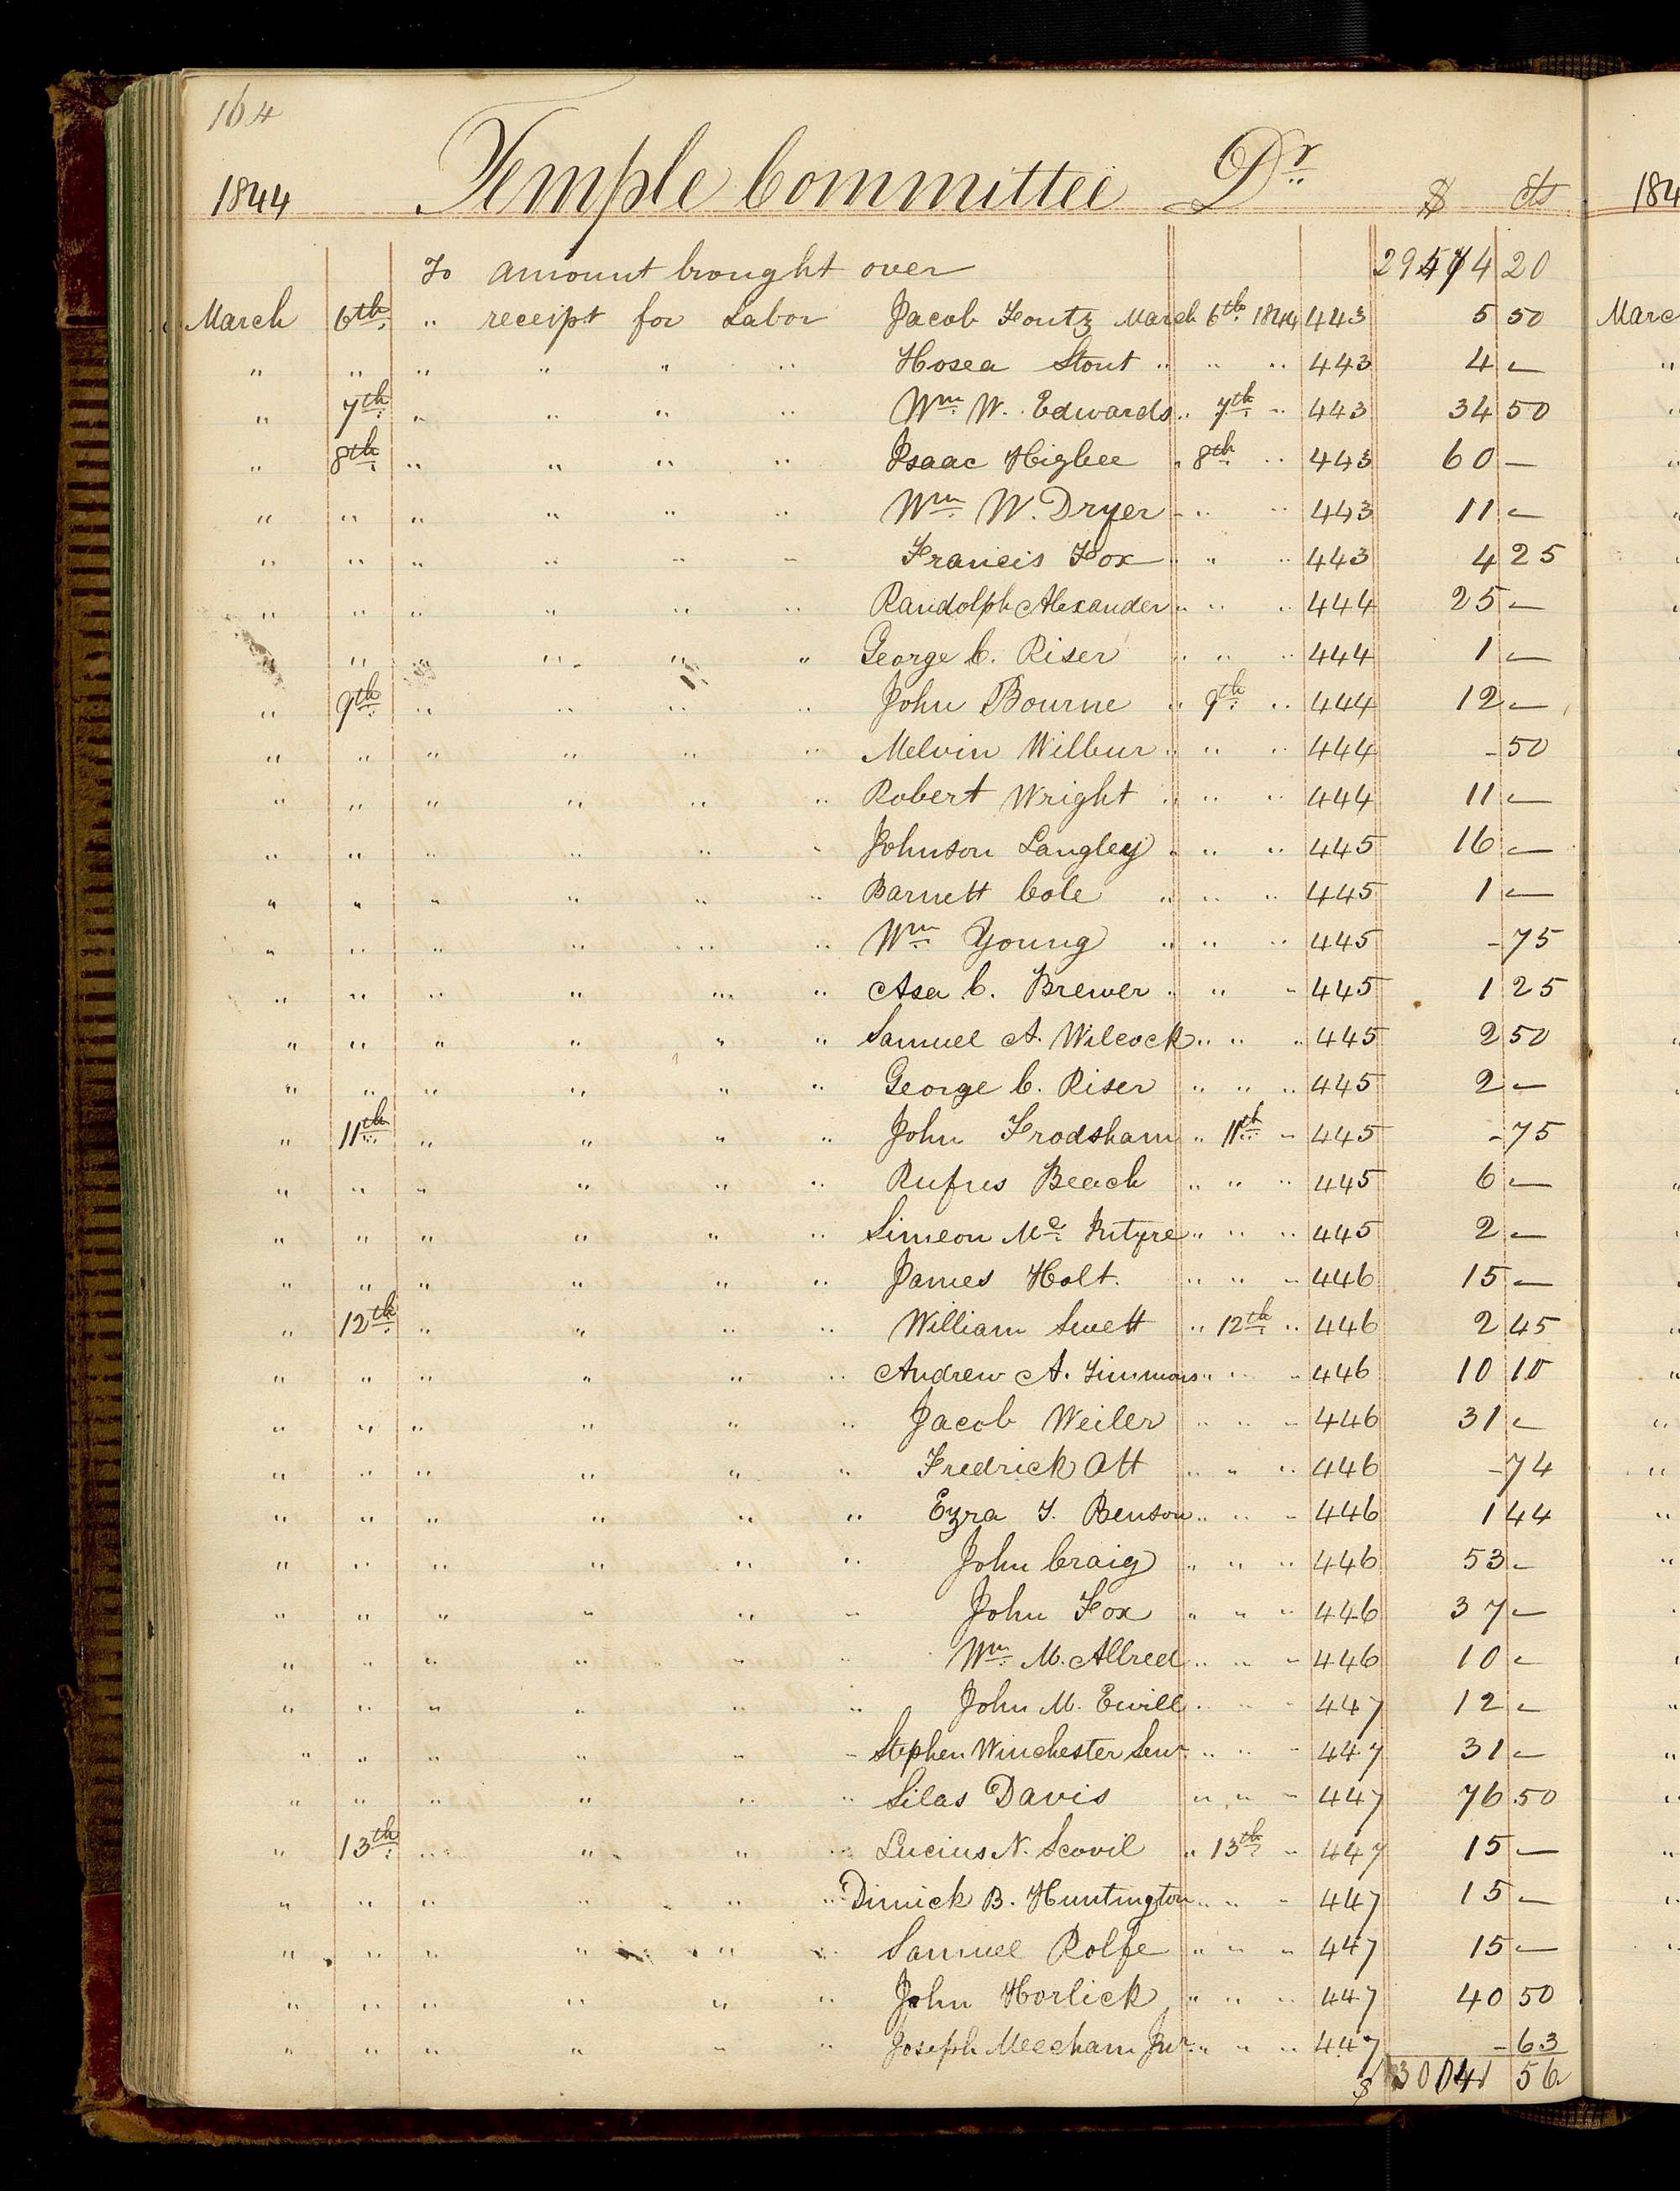 164
1844 Temple Committee Dr $ cts 184
To amount brought over 29474 20
March 6th " receipt for Labor Jacob Foutz March 6th 1844 443 5 50 Marc
" " " " " " Hosea Stout " " " 443 4 —
" 7th " " " " Wm W. Edwards " 7th " 443 34 50
" 8th " " " " Isaac Higbee " 8th " 443 60 —
" " " " " " Wm W. Dryer " " " 443 11 —
" " " " " " Francis Fox " " " 443 4 25
" " " " " " Randolph Alexander " " " 444 25 —
" " " " " " George C. Riser " " " 444 1 —
" 9th " " " " John Bourne " 9th " 444 12 —
" " " " " " Melvin Wilbur " " " 444 - 50
" " " " " " Robert Wright " " " 444 11 —
" " " " " " Johnson Langley " " " 445 16 —
" " " " " " Barnett Cole " " " 445 1 —
" " " " " " Wm Young " " " 445 - 75
" " " " " " Asa C. Brewer " " " 445 1 25
" " " " " " Samuel A. Wilcock " " " 445 2 50
" " " " " " George C. Riser " " " 445 2 —
" 11th " " " " John Frodsham " 11th " 445 - 75
" " " " " " Rufus Beach " " " 445 6 —
" " " " " " Simeon Mc Intyre " " " 445 2 —
" " " " " " James Holt. " " " 446 15 —
" 12th " " " " William Swett " 12th " 446 2 45
" " " " " " Andrew A. Timmons " " " 446 10 10
" " " " " " Jacob Weiler " " " 446 31 —
" " " " " " Fredrick Ott " " " 446 - 74
" " " " " " Ezra T. Benson " " " 446 1 44
" " " " " " John Craig " " " 446 53 —
" " " " " " John Fox " " " 446 37 —
" " " " " " Wm M. Allred " " " 446 10 —
" " " " " " John M. Ewell " " " 447 12 —
" " " " " " Stephen Winchester Senr " " " 447 31 —
" " " " " " Silas Davis " " " 447 76 50
" 13th " " " " Lucius N. Scovil " 13th " 447 15 —
" " " " " " Dimick B. Huntington " " " 447 15 —
" " " " " " Samuel Rolfe " " " 447 15 —
" " " " " " John Horlick " " " 447 40 50
" " " " " " Joseph Meecham Jnr " " " 447 - 63
$ 30041 56